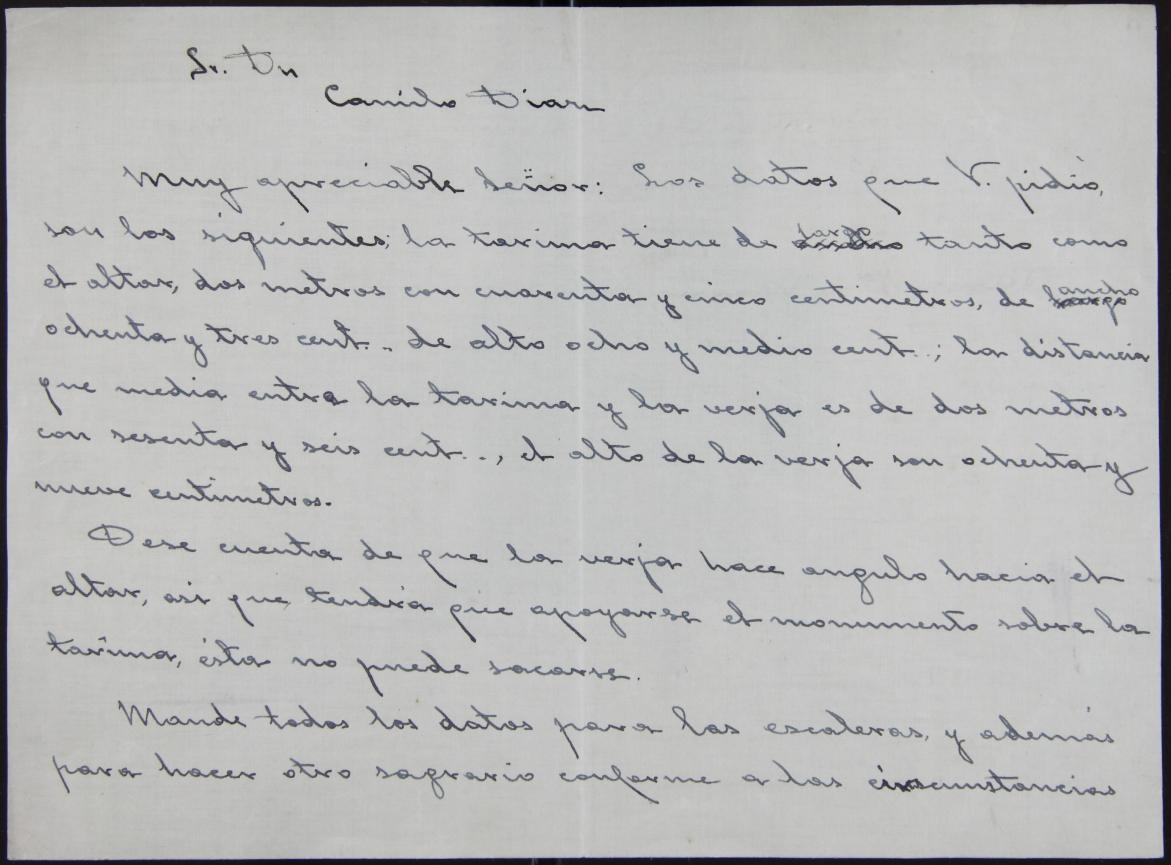 Sr. Dn
Camilo Diaz
Muy apreciable Señor: Los datos que V. pidió,
son los siguientes; la tarima tiene de ancho largo tanto como
el altar, dos metros con cuarenta y cinco centimetros, de largo ancho
ochenta y tres cent... de alto ocho y medio cent..; la distancia
que media entre la tarima y la verja es de dos metros
con sesenta y seis cent.., el alto de la verja son ochenta y
nueve centimetros.
Dese cuenta de que la verja hace angulo hacia el
altar, asi que tendrá que apoyarse el monumento sobre la
tarima, ésta no puede sacarse.
Mande todos los datos para las escaleras, y además
para hacer otro sagrario conforme a las circunstancias